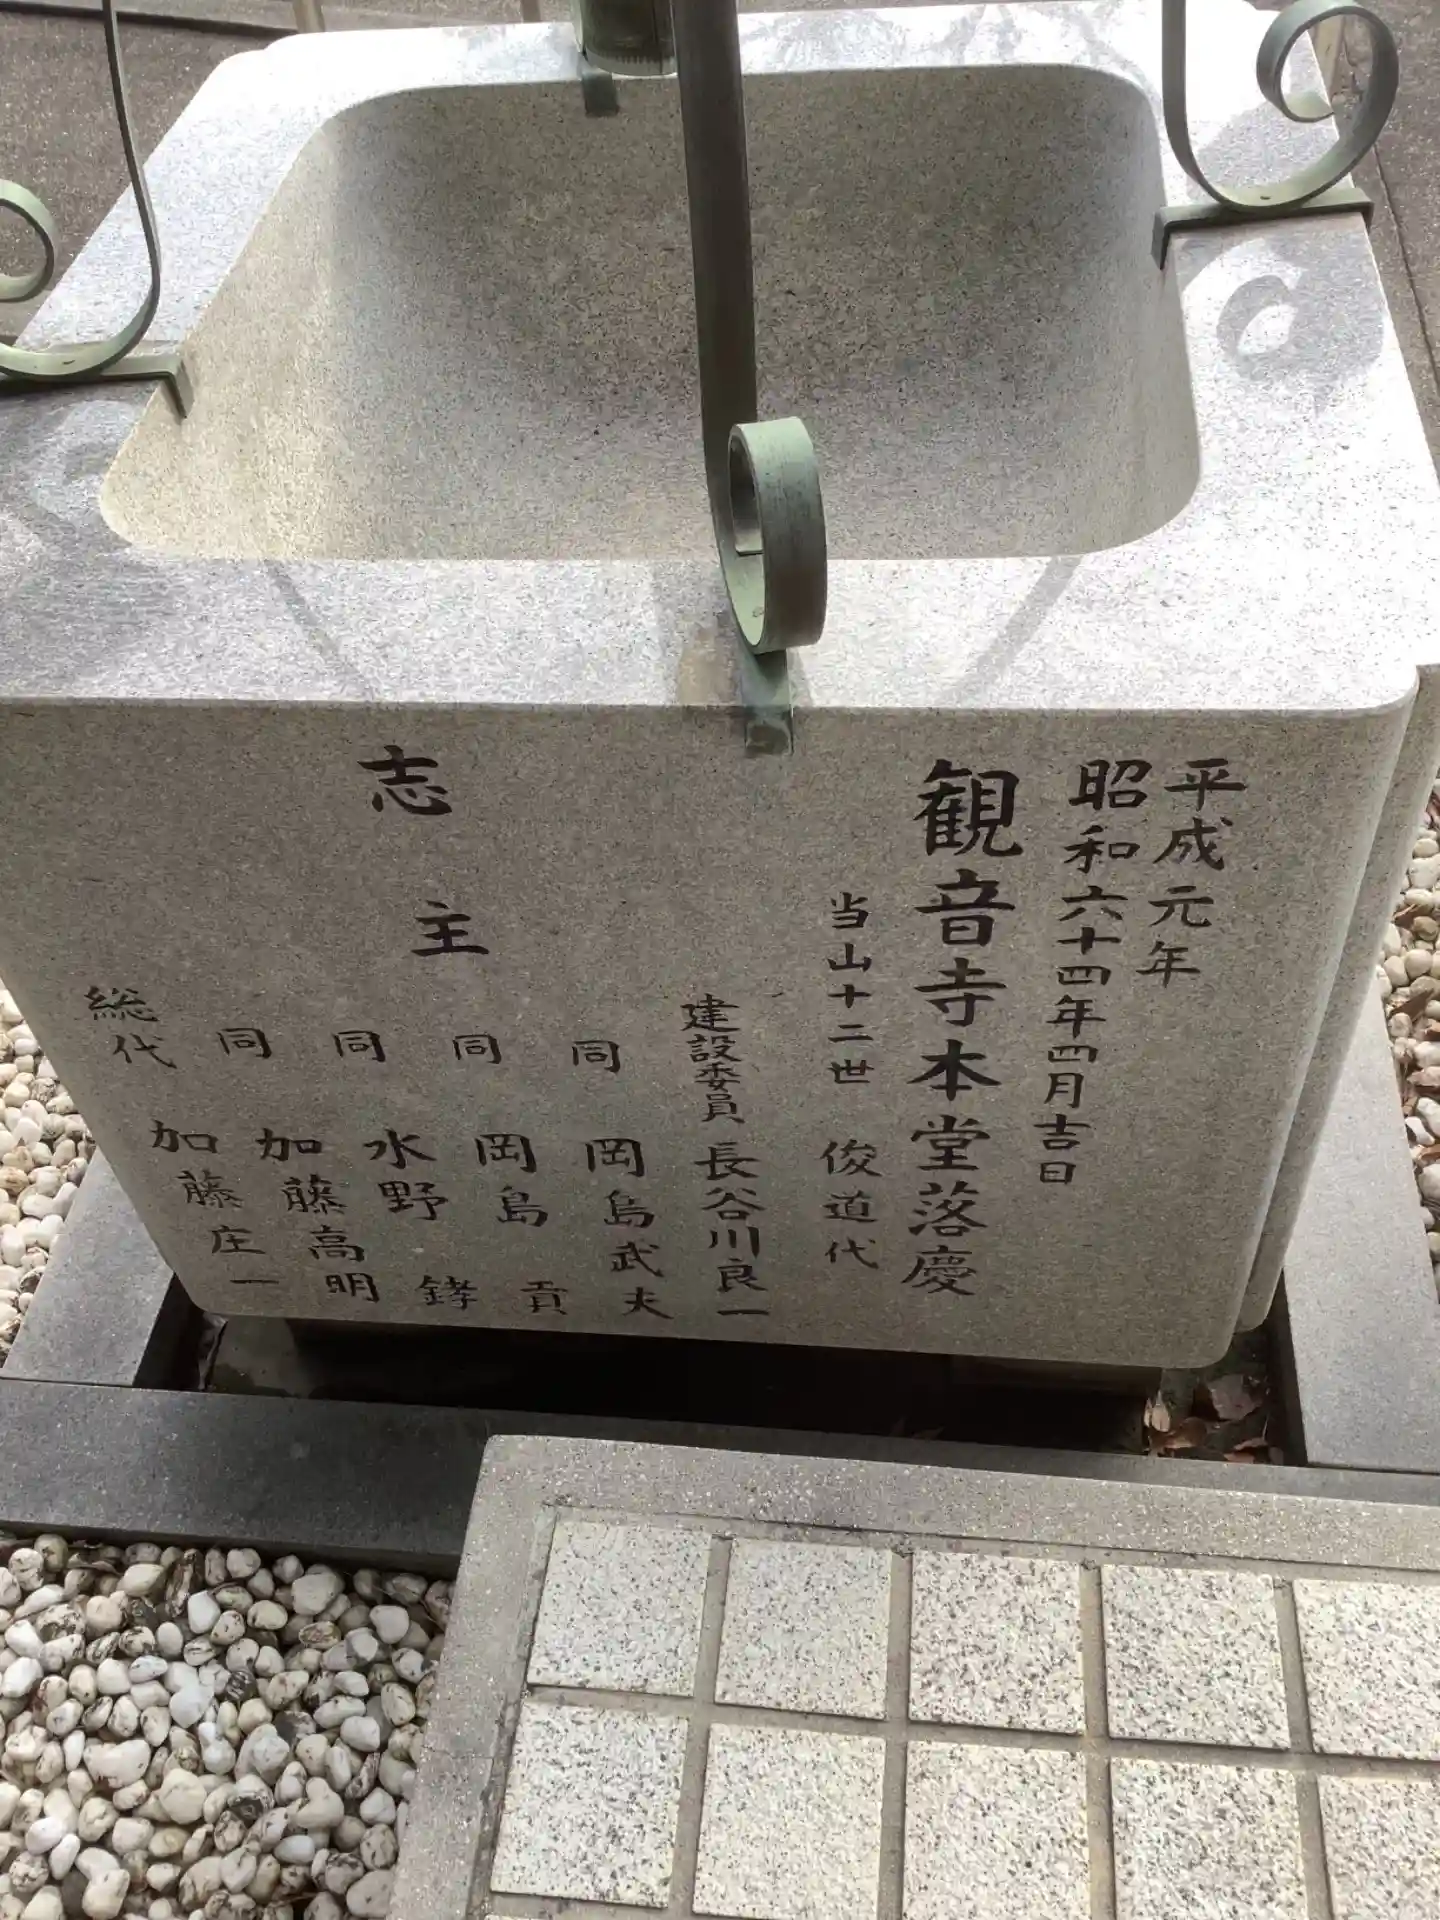 平成元年
昭和六十四年四月吉日
観音寺本堂落慶
当山十二世 俊道代
建設委員 長谷川良一
同 岡島武夫
同 岡島 貢
同 水野 鋍
同 加藤高明
総代 加藤庄一
志主